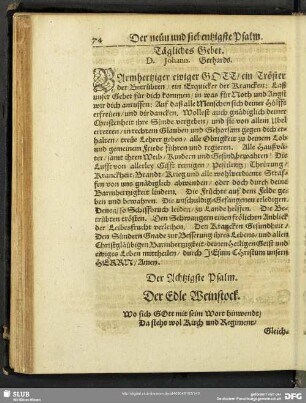 74 Der neün und siebentzigste Psalm.
Tägliches Gebet.
D. Johann. Gerhards.
BArmhertziger ewiger GOTT / ein Tröster
der Betrübten / ein Erquicker der Krancken: Laß
unser Gebet für dich kommen / in was für Noth und Angst
wir dich anruffen: Auf daß alle Menschen sich deiner Hülffe
erfreuen / und dir dancken. Wollest auch gnädiglich deiner
Christenheit ihre Sünde vergeben / und sie von allem Ubel
erretten / in rechtem Glauben und Gehorsam gegen dich er-
halten / treue Lehrer geben / alle Obrigkeit zu deinem Lob
und gemeinem Friede führen und regieren. Alle Haußvä-
ter / samt ihren Weib / Kindern und Gesinde bewahren: Die
Lufft von allerley Gifft reinigen / Pestilentz / Theürung /
Kranckheit / Brand / Krieg und alle wohlverdiente Straf-
fen von uns gnädiglich abwenden / oder doch durch deine
Barmhertzigkeit lindern. Die Früchte auf dem Felde ge-
ben und bewahren. Die unschuldig Gefangenen erledigen.
Denen / so Schiffbruch leiden / zu Lande helffen. Die Be-
trübten trösten. Den Schwangern einen frölichen Anblick
der Leibesfrucht verleihen. Den Krancken Gesundheit /
Den Sündern Gnade zur Besserung ihres Lebens / und allen
Christgläubigen Barmhertzigkeit / deinen Heiligen Geist und
ewiges Leben mittheilen / durch JEsum Christum unsern
HERRN / Amen.
Der Achtzigste Psalm.
Der Edle Weinstock.
Wo sich GOtt mit sein Wort hinwendt /
Da stehts wol Kirch und Regiment /
Gleich.
SLUB
DFG